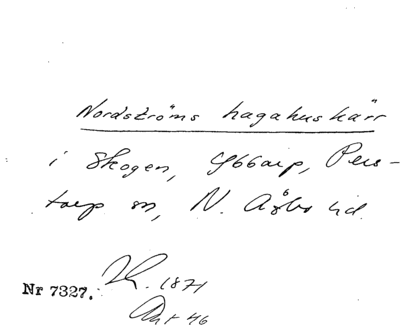 Nordströms hagahuskärr
i skogen, Ybbarp, Pers-
torp sn, N. Åsbo hd.
Nr 7327.
1871
46